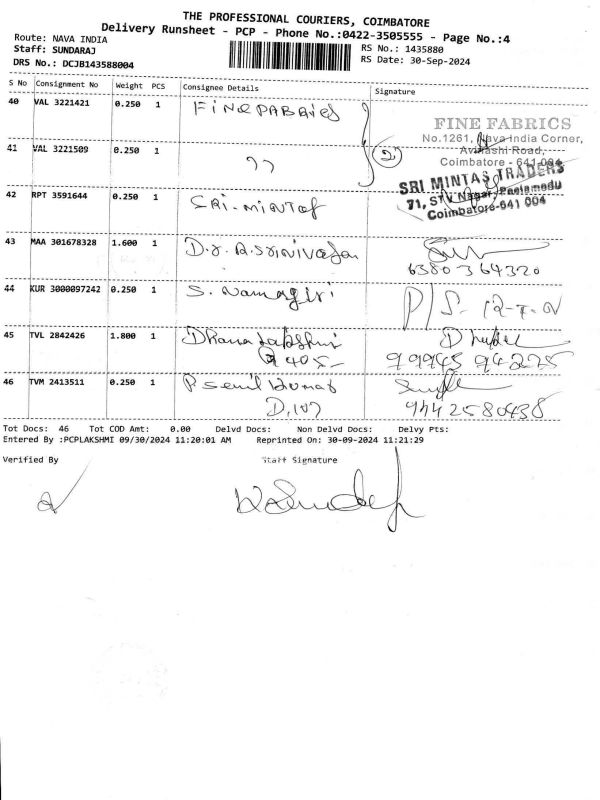 THE PROFESSIONAL COURIERS, COIMBATORE
Delivery Runsheet - PCP - Phone No.:0422-3505555 - Page No.:4
Route: NAVA INDIA
RS No.: 1435880
Staff: SUNDARAJ
RS Date: 30-Sep-2024
DRS No.: DCJB143588004
S No Consignment No Weight PCS Consignee Details Signature
40 VAL 3221421 0.250 1 FINE FABRICS
FINE FABRICS
No.1261, Nava-India Corner,
Avinashi Road,
Coimbatore - 641 004
41 VAL 3221509 0.250 1 ,, 2
SRI MINTAS TRADERS
71, STV Nagar, Peelamedu
Coimbatore-641 004
42 RPT 3591644 0.250 1 SRI-MINTAS
43 MAA 301678328 1.600 1 D.r. R.Srinivasan
6380364320
44 KUR 3000097242 0.250 1 S. Namagiri
45 TVL 2842426 1.800 1 Dhanalakshmi
405 99945 94275
46 TVM 2413511 0.250 1 P Senthil Kumar
D,107 9442580438
Tot Docs: 46 Tot COD Amt: 0.00 Delvd Docs: Non Delvd Docs: Delvy Pts:
Entered By :PCPLAKSHMI 09/30/2024 11:20:01 AM Reprinted On: 30-09-2024 11:21:29
Verified By Staff Signature